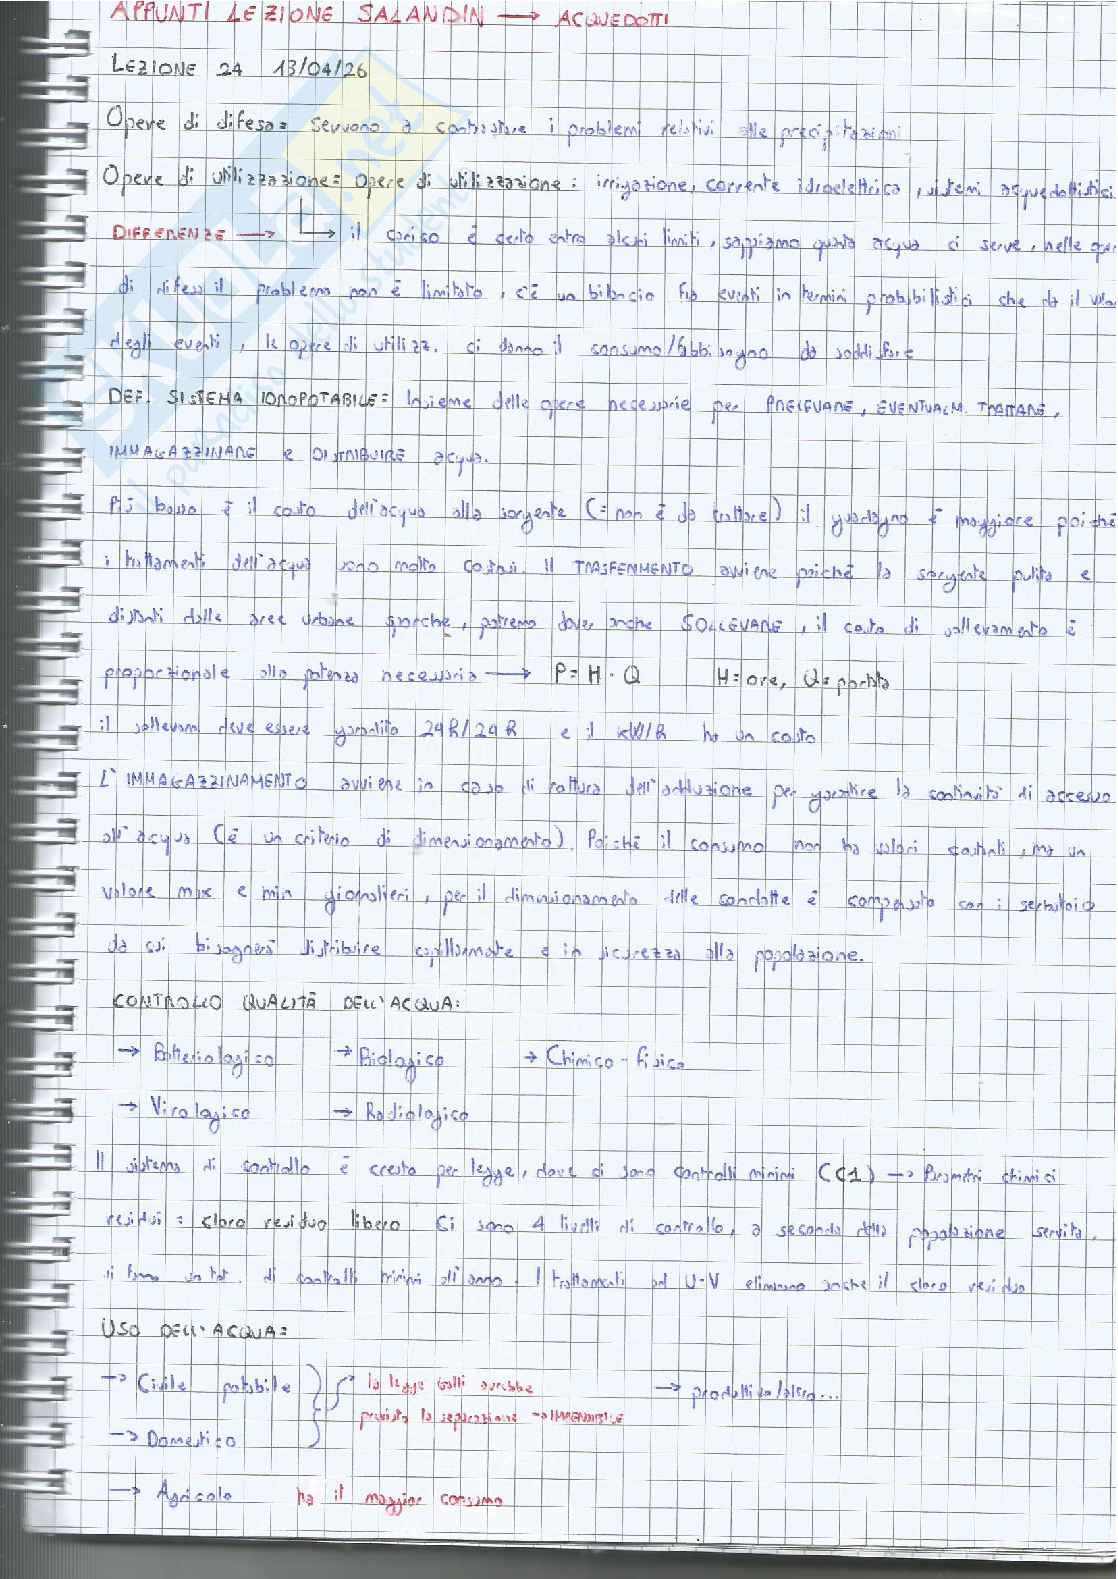 APPUNTI LEZIONE SALANDIN → ACQUEDOTTI
LEZIONE 24 13/04/26
Opere di difesa = servono a contrastare i problemi relativi alle precipitazioni
Opere di utilizzazione = opere di utilizzazione : irrigazione, corrente idroelettrica, sistemi acquedottistici
DIFFERENZE → il carico è certo entro alcuni limiti, sappiamo quanta acqua ci serve, nelle
di difesa il problema non è limitato, c'è un bilancio fra eventi in termini probabilistici che dà il
degli eventi, le opere di utilizz. ci danno il consumo/fabbisogno da soddisfare
DEF. SISTEMA IDROPOTABILE = Insieme delle opere necessarie per PRELEVARE, EVENTUALM. TRATTARE,
IMMAGAZZINARE e DISTRIBUIRE acqua.
Più basso è il costo dell'acqua alla sorgente (= non è da trattare) il guadagno è maggiore poiché
i trattamenti dell'acqua sono molto costosi. Il TRASFERIMENTO avviene poiché la sorgente pulita e
distanti dalle aree urbane sporche, potremo dover anche SOLLEVARE, il costo di sollevamento è
proporzionale alla potenza necessaria → P = H · Q H = ore, Q = portata
il sollevam deve essere garantito 24h/24h e il kW/h ha un costo
L'IMMAGAZZINAMENTO avviene in caso di rottura dell'adduzione per garantire la continuità di accesso
all'acqua (è un criterio di dimensionamento). Poiché il consumo non ha valori costanti, ma un
valore max e min giornalieri, per il dimensionamento delle condotte è compensato con i serbatoi
da cui bisognerà distribuire capillarmente e in sicurezza alla popolazione.
CONTROLLO QUALITÀ DELL'ACQUA:
→ Batteriologico → Biologico → Chimico-fisico
→ Virologico → Radiologico
Il sistema di controllo è creato per legge, dove ci sono controlli minimi (C1) → Parametri chimici
residui = cloro residuo libero Ci sono 4 livelli di controllo, a seconda della popolazione servita.
si fanno un tot. di controlli minimi all'anno. I trattamenti ad U-V eliminano anche il cloro residuo
USO DELL'ACQUA =
→ Civile potabile la legge Galli avrebbe → produttivo/altro...
previsto la separazione →
→ Domestico
→ Agricolo ha il maggior consumo